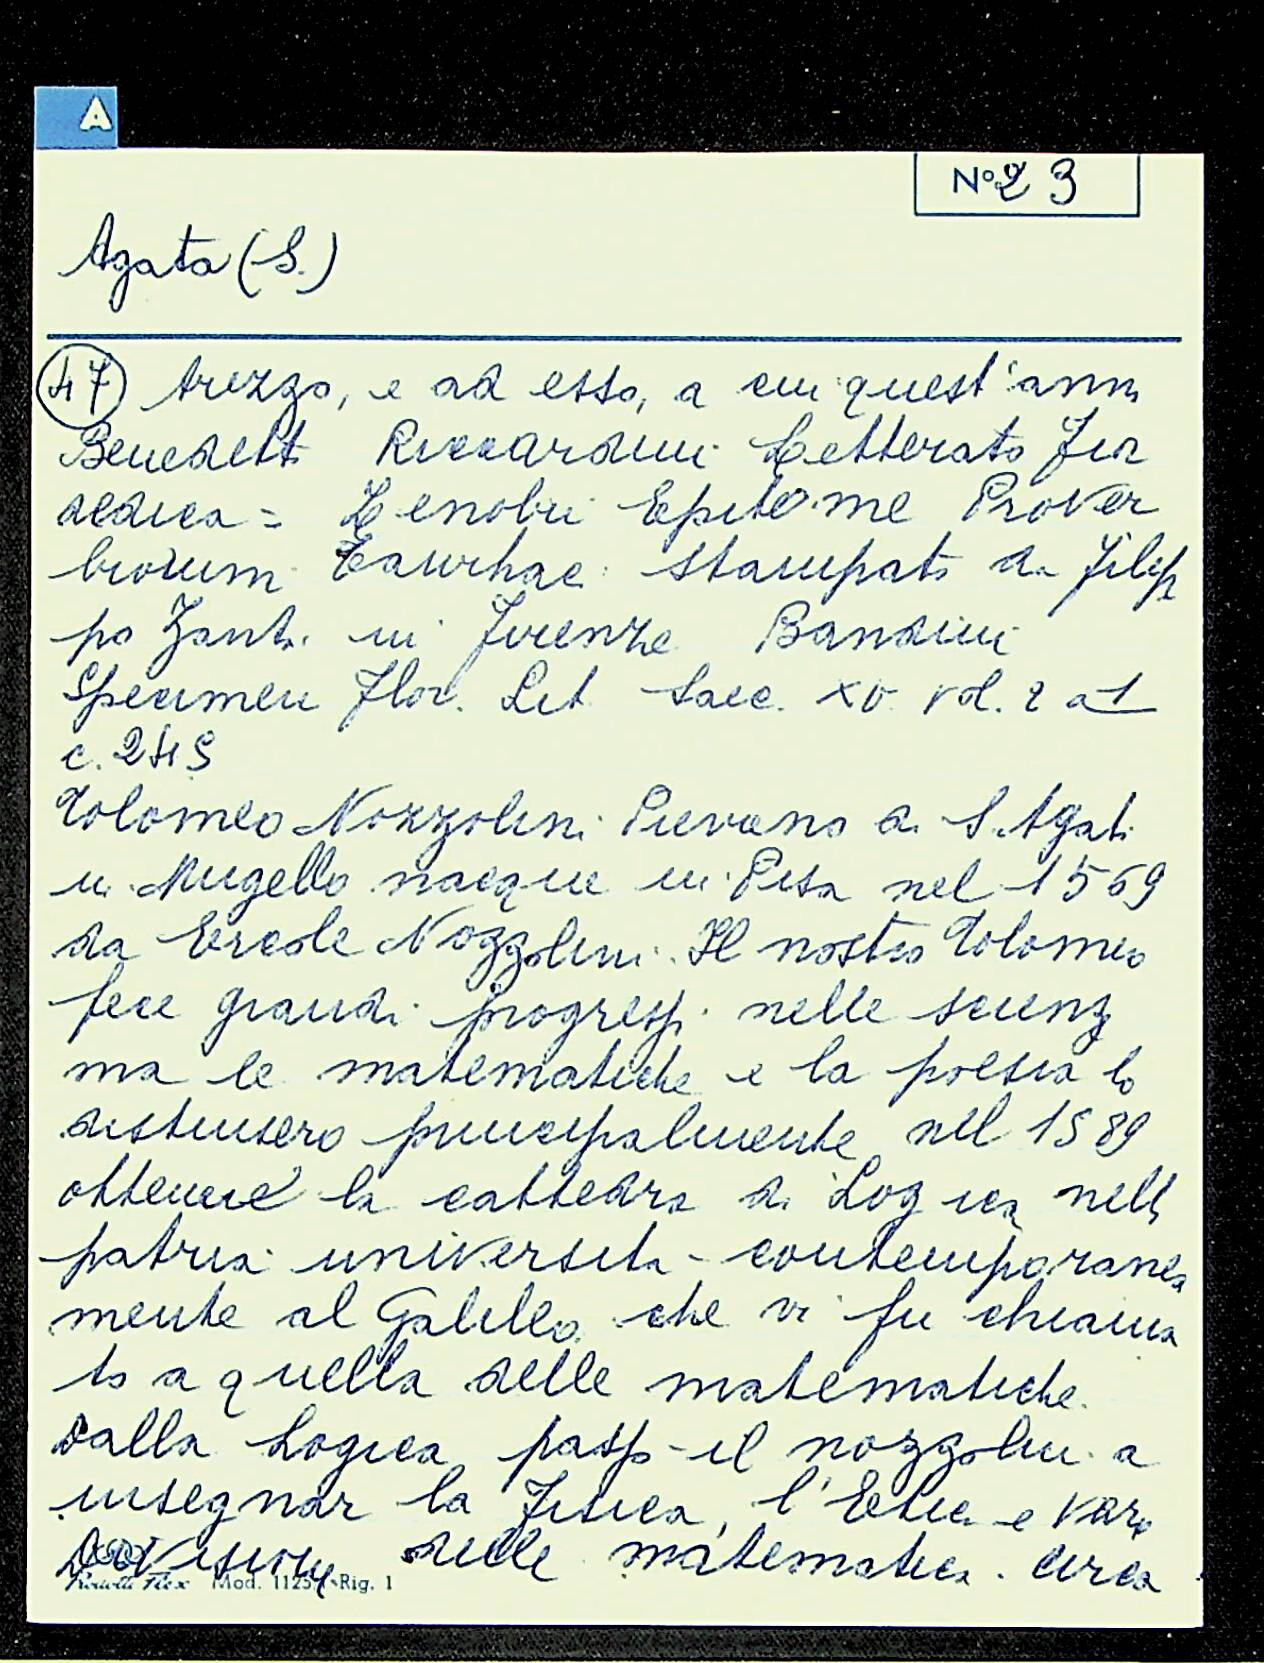 A
Nº 23
Agata (S.)
47 Arezzo, e ad esso, a cui quest'ann
Benedetto Riccardini Letterato Fior
dedica = Zenobii Epitome Prover
biorum Tarrhae: Stampato da Filip
po Zunti in Firenze Bandini
Specimen Flor. Lit. Saec. XV vol. 2 a1
c. 245
Tolomeo Nozzolini Pievano di S. Agata
in Mugello nacque in Pisa nel 1569
da Ercole Nozzolini. Il nostro Tolomeo
fece grandi progressi nelle scienz
ma le matematiche e la poesia lo
distinsero principalmente nel 1589
ottenere la cattedra di Logica nell
patria università - contemporanea
mente al Galileo che vi fu chiama
to a quella delle matematiche.
Dalla Logica passò il nozzolini a
insegnar la Fisica, l'Etica e var
divisioni delle matematica. Circa
Flex Mod. 1125 Rig. 1